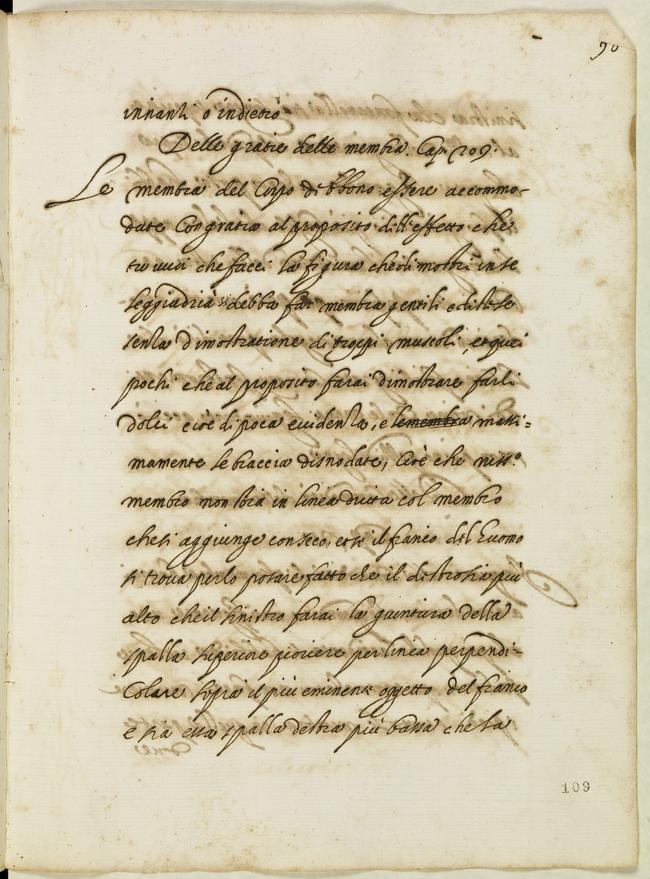 90
innanti o indietro
Delle gratie delle membra. Cap. 209.
Le membra del Corpo debbono essere accommo-
date Con gratia al proposito dell'effetto che
tu vuoi che facci la figura che di mostri in se
leggiadria si debba far membra gentili e distese
senza dimostratione di troppi muscoli, et quei
pochi che al proposito farai dimostrare farli
dolci cioè di poca evidenza, e le membra massi=
mamente le braccia disnodate, Cioè che niss.o
membro non stia in linea dritta col membro
che si aggiunge con seco, et se il fianco dell huomo
si trova per lo posare fatto che il destro sia più
alto che il sinistro farai la giuntura della
spalla superiore piovere per linea perpendi-
Colare sopra il più eminente oggetto del fianco
e sia essa spalla destra più bassa che la
109